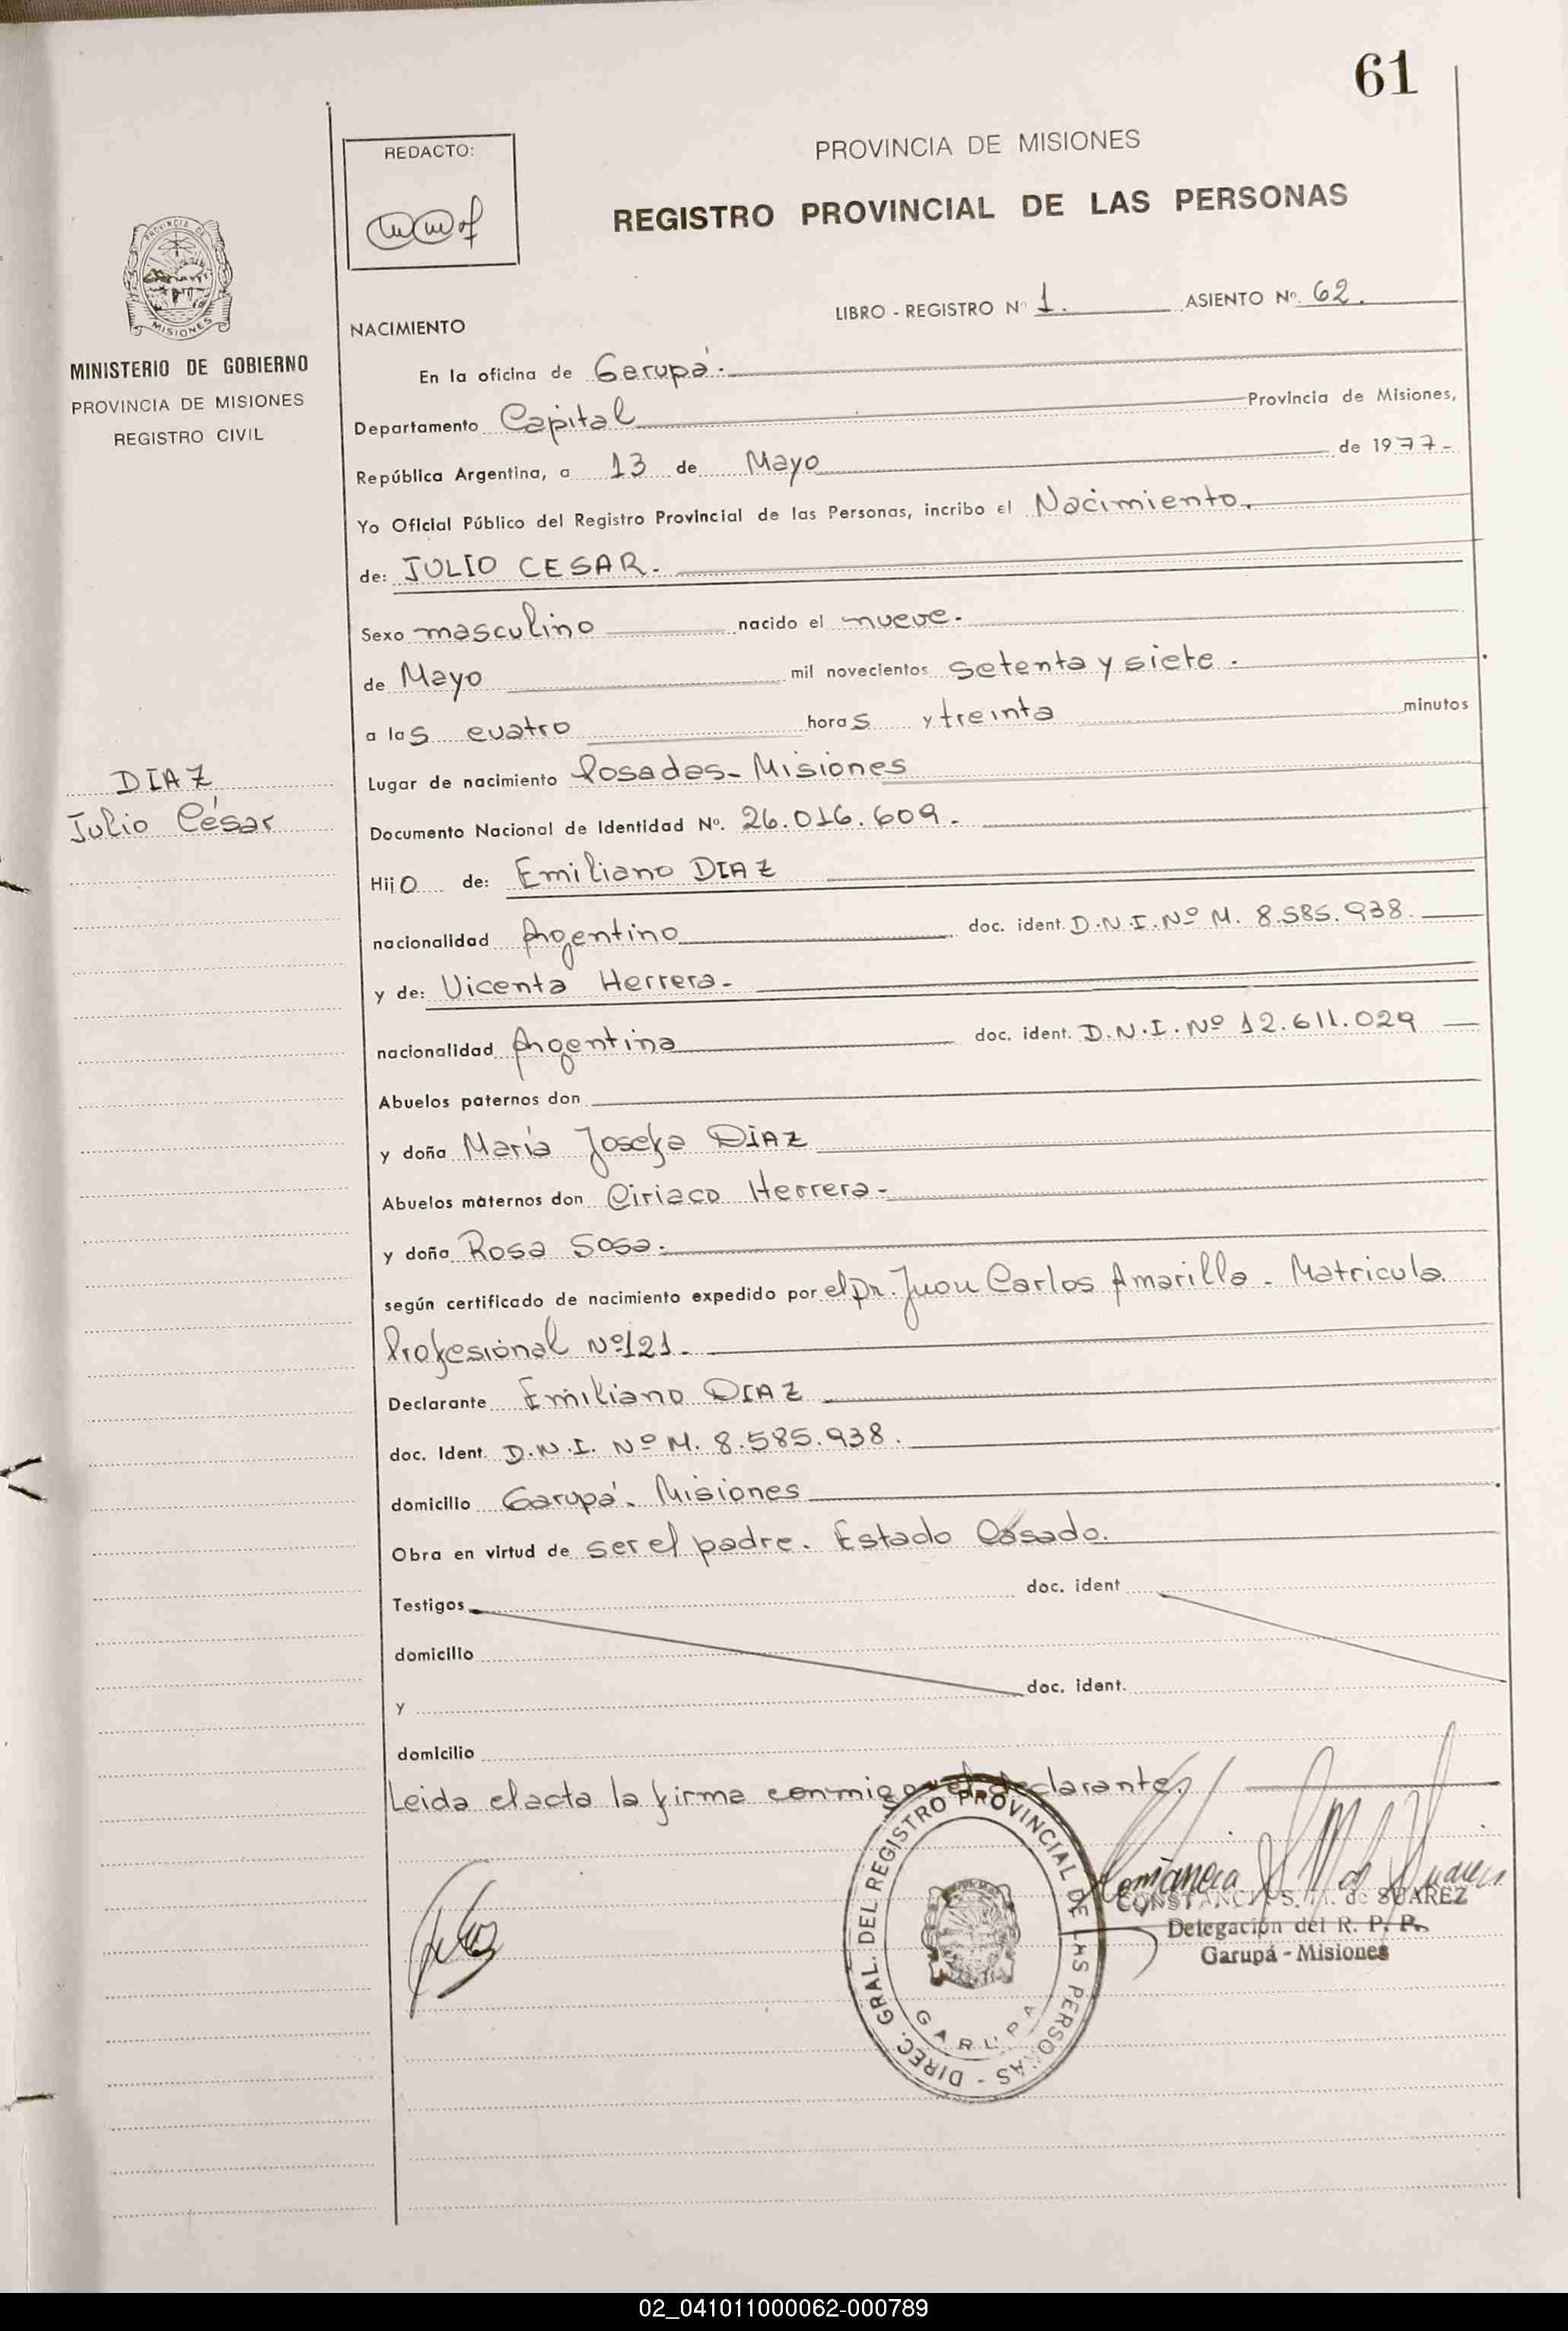 61
REDACTO:
PROVINCIA DE MISIONES
REGISTRO PROVINCIAL DE LAS PERSONAS
PROVINCIA DE
MISIONES
MINISTERIO DE GOBIERNO
PROVINCIA DE MISIONES
REGISTRO CIVIL
LIBRO - REGISTRO Nº 1. ASIENTO Nº. 62.
NACIMIENTO
En la oficina de Garupá.
Departamento Capital Provincia de Misiones,
República Argentina, a 13 de Mayo de 1977-
Yo Oficial Público del Registro Provincial de las Personas, incribo el Nacimiento.
de: JULIO CESAR.
Sexo masculino nacido el nueve.
de Mayo mil novecientos setenta y siete.
a las cuatro horas y treinta minutos
DIAZ
Julio César
Lugar de nacimiento Posadas- Misiones
Documento Nacional de Identidad Nº. 26.016.609.
Hijo de: Emiliano DIAZ
nacionalidad Argentino doc. ident. D.N.I. Nº M. 8.585.938.
y de: Vicenta Herrera.
nacionalidad Argentina doc. ident. D.N.I. Nº 12.611.029
Abuelos paternos don
y doña María Josefa DIAZ
Abuelos maternos don Ciriaco Herrera-
y doña Rosa Sosa.
según certificado de nacimiento expedido por el Dr. Juan Carlos Amarilla - Matricula
Profesional Nº121.
Declarante Emiliano DIAZ
doc. Ident. D.N.I. Nº M. 8.585.938.
domicilio Garupá. Misiones
Obra en virtud de ser el padre. Estado Casado.
Testigos doc. ident
domicilio
y doc. ident.
domicilio
Leida el acta la firma conmigo el declarante.
DIREC. GRAL. DEL REGISTRO PROVINCIAL DE LAS PERSONAS -
GARUPA
CONSTANCIA S. M. de SUAREZ
Delegación del R. P. P.
Garupá - Misiones
02_041011000062-000789